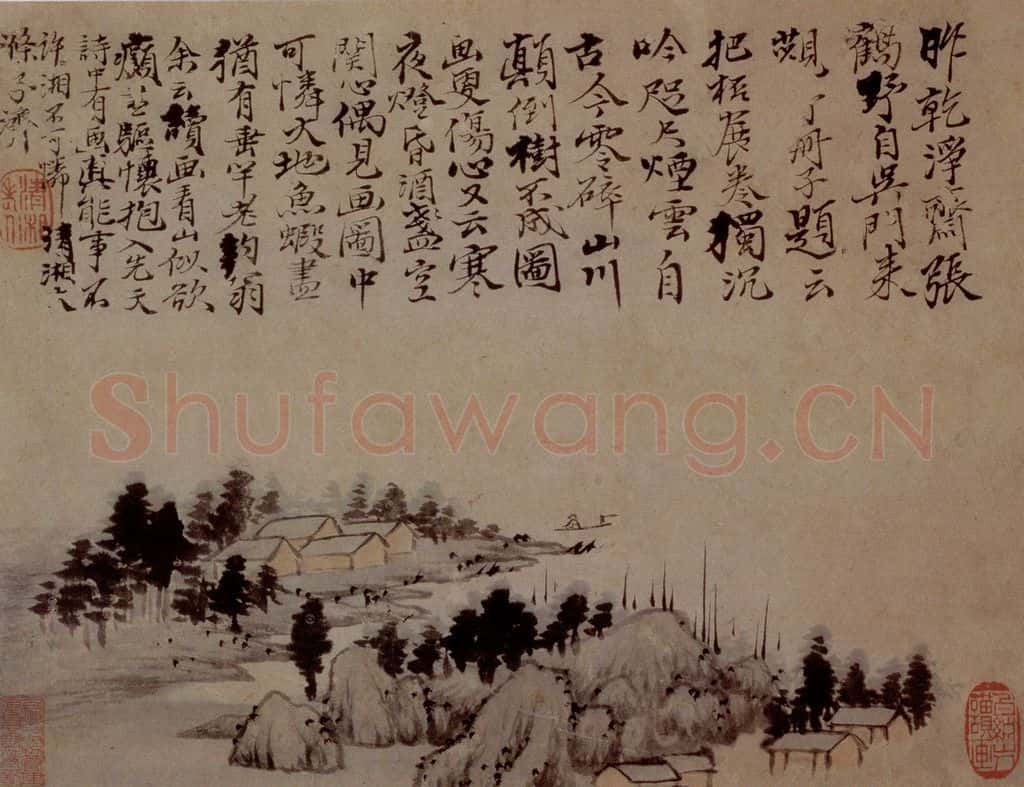 昨乾淨齋張
鶴野自吳門来
觀予冊子題云
把杯展卷獨沉
吟咫尺煙雲自
古今零碎山川
顛倒樹不成圖
画更傷心又云寒
夜燈昏酒盞空
関心偶見画圖中
可憐大地魚蝦盡
猶有垂竿老釣翁
余云讀画看山似欲
癲盡驅懷抱入先天
詩中有画真能事不
許湘不可憐 清湘大
滌子濟
清湘老人
Shufawang.CN